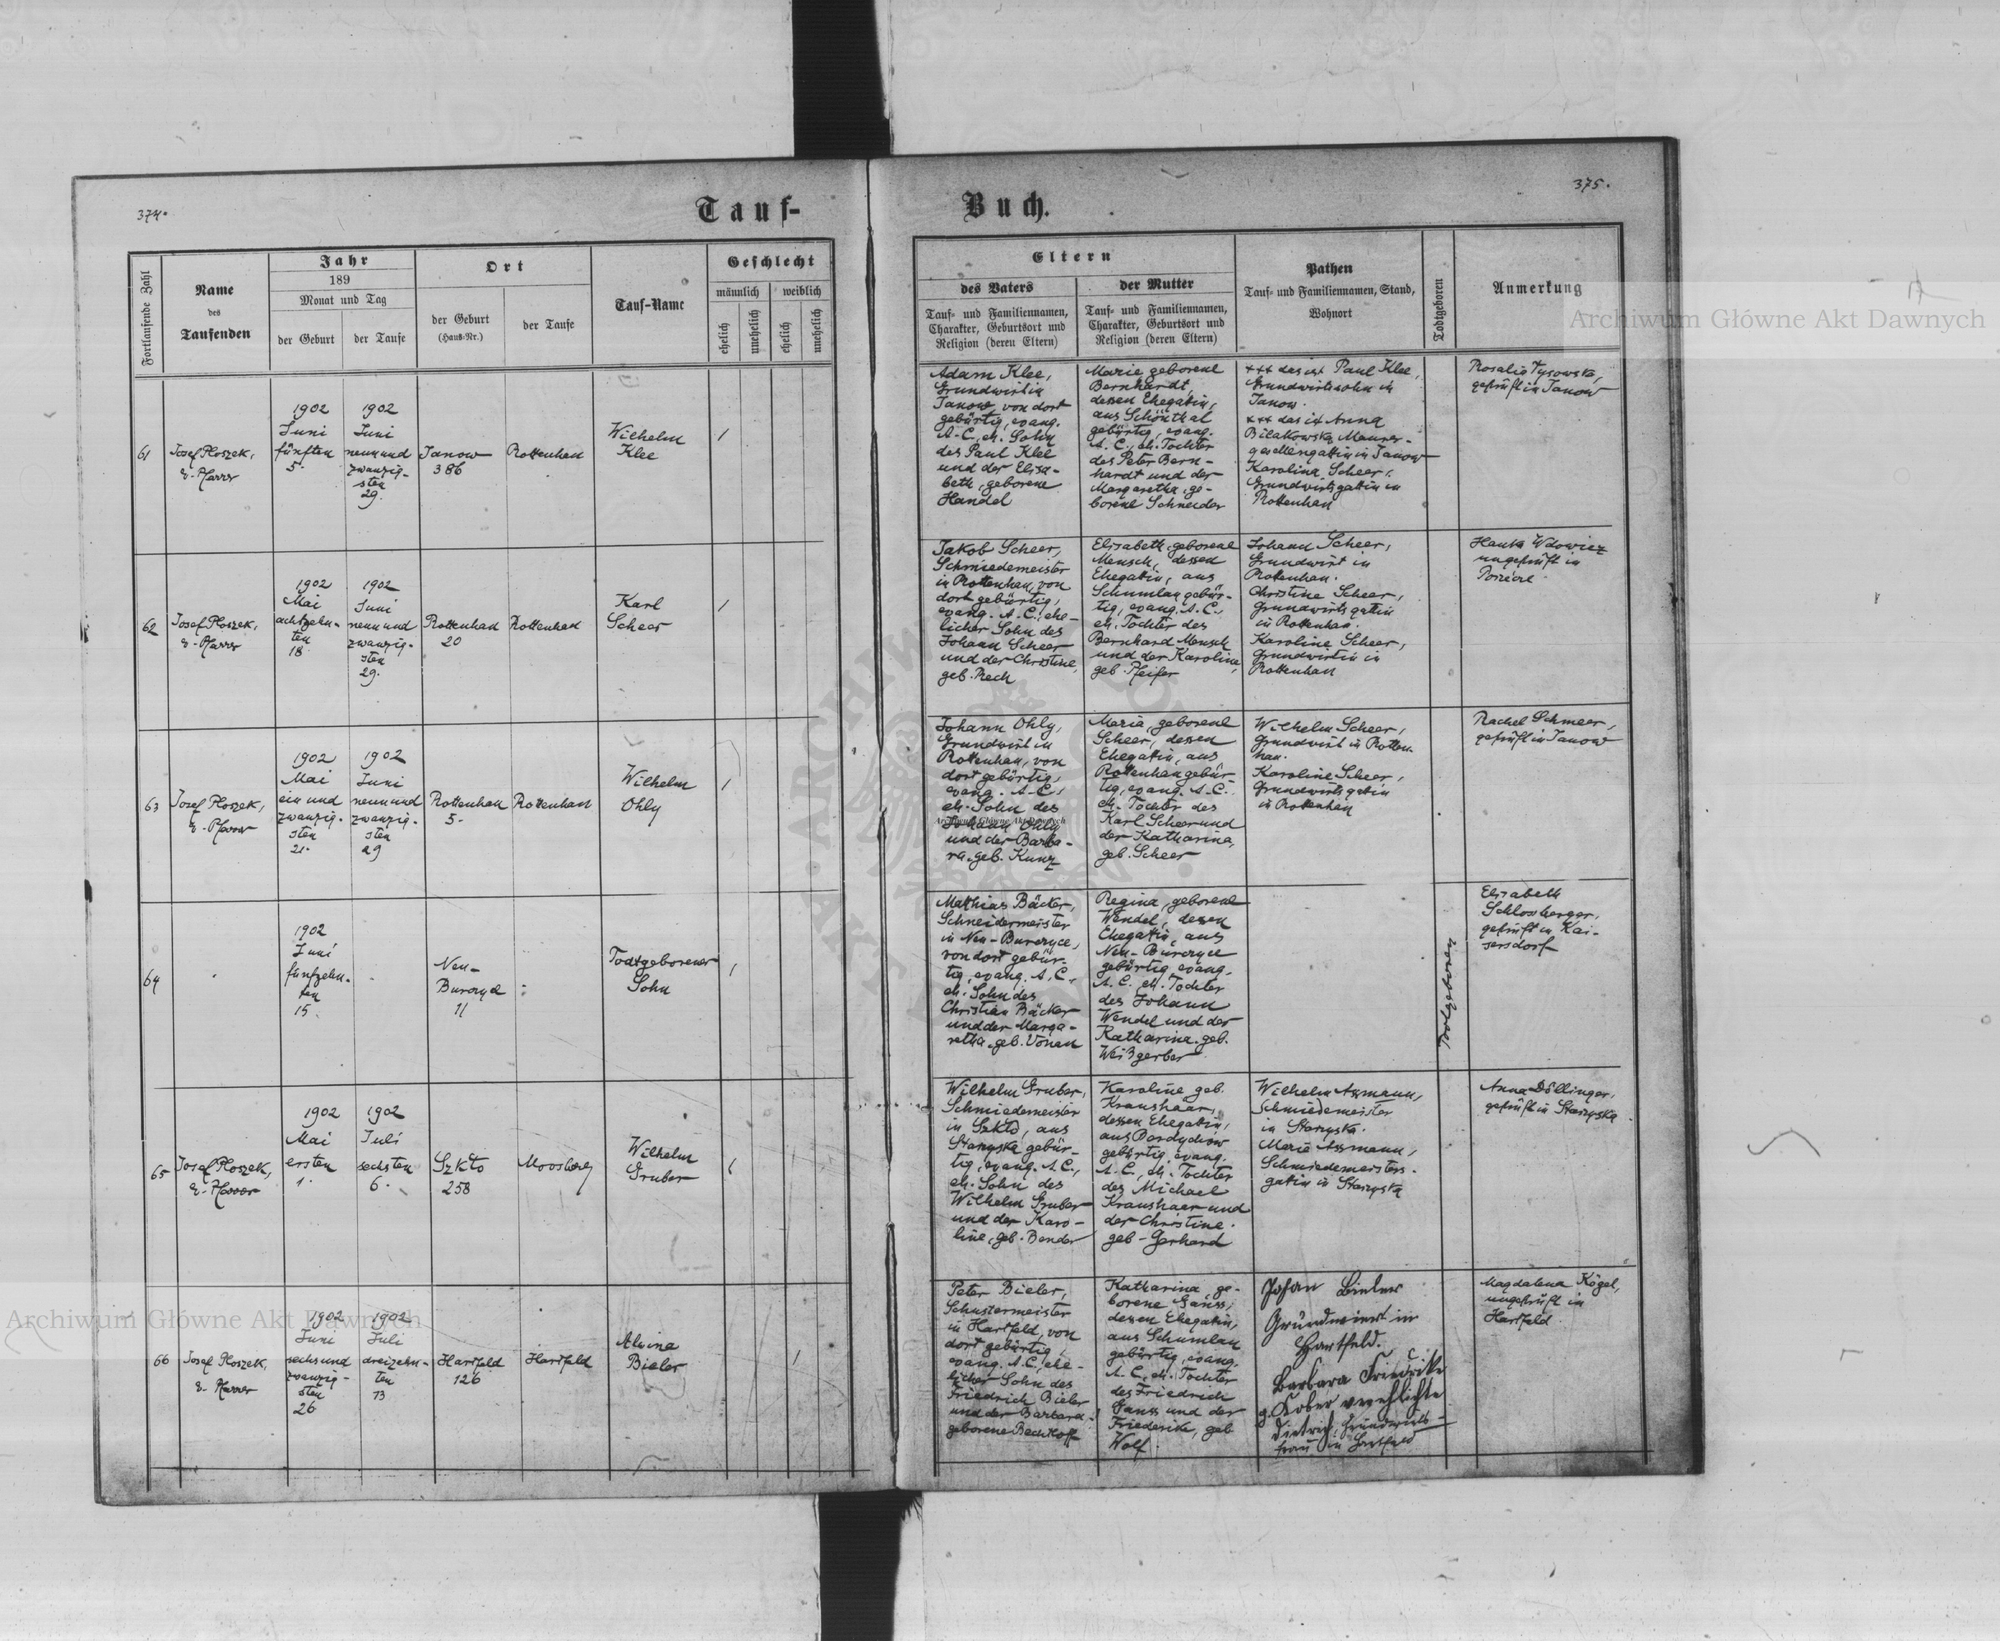 374.
375.
Tauf-
Buch.
Fortlaufende Zahl
Name
des
Taufenden
Jahr
189
Monat und Tag
der Geburt
der Taufe
Ort
der Geburt
(Haus-Nr.)
der Taufe
Tauf-Name
Geschlecht
männlich
weiblich
ehelich
unehelich
ehelich
unehelich
Eltern
des Vaters
Tauf- und Familiennamen,
Charakter, Geburtsort und
Religion (deren Eltern)
der Mutter
Tauf- und Familiennamen,
Charakter, Geburtsort und
Religion (deren Eltern)
Pathen
Tauf- und Familiennamen, Stand,
Wohnort
Todtgeboren
Anmerkung
61
Josef Ploszek,
e. Pfarrer
1902
Juni
fünften
5.
1902
Juni
neunund
zwanzig-
sten
29.
Janow
386
Rottenhan
Wilhelm
Klee
1
Adam Klee,
Grundwirt in
Janow, von dort
gebürtig, evang.
A. C., eh. Sohn
des Paul Klee
und der Elisa-
beth, geborene
Handel
Marie geborene
Bernhardt,
dessen Ehegattin,
aus Schönthal
gebürtig, evang.
A. C., eh. Tochter
des Peter Bern-
hardt und der
Margaretha, ge-
borene Schneider
+++ das ist Paul Klee,
Grundwirtssohn in
Janow.
+++ das ist Anna
Bilakowska Maurer-
gesellengattin in Janow
Karolina Scheer,
Grundwirtsgattin in
Rottenhan
Rosalie Tysowska,
geprüft in Janow
62
Josef Ploszek,
e. Pfarrer
1902
Mai
achtzehn-
ten
18.
1902
Juni
neunund
zwanzig-
sten
29.
Rottenhan
20
Rottenhan
Karl
Scheer
1
Jakob Scheer,
Schmiedemeister
in Rottenhan, von
dort gebürtig,
evang. A. C., ehe-
licher Sohn des
Johann Scheer
und der Christine,
geb. Rech
Elisabeth, geborene
Mensch, dessen
Ehegattin, aus
Schumlau gebür-
tig, evang. A. C.,
eh. Tochter des
Bernhard Mensch
und der Karoline,
geb. Pfeifer
Johann Scheer,
Grundwirt in
Rottenhan.
Christine Scheer,
Grundwirtsgattin
in Rottenhan.
Karoline Scheer,
Grundwirtin in
Rottenhan
Hanka Wdowicz
ungeprüft in
63
Josef Ploszek,
e. Pfarrer
1902
Mai
ein und
zwanzig-
sten
21.
1902
Juni
neunund
zwanzig-
sten
29
Rottenhan
5.
Rottenhan
Wilhelm
Ohly
1
Johann Ohly,
Grundwirt in
Rottenhan, von
dort gebürtig,
evang. A. C.,
eh. Sohn des
Johann Ohly
und der Barba-
ra, geb. Kunz
Maria, geborene
Scheer, dessen
Ehegattin, aus
Rottenhan gebür-
tig, evang. A. C.
eh. Tochter des
Karl Scheer und
der Katharina,
geb. Scheer
Wilhelm Scheer,
Grundwirt in Rotten-
han.
Karoline Scheer,
Grundwirtsgattin
in Rottenhan
Rachel Schmeer,
geprüft in Janow
64
1902
Juni
fünfzehn-
ten
15.
Neu-
Burczyce
11
Todtgeborener
Sohn
1
Mathias Bäcker,
Schneidermeister
in Neu-Burczyce,
von dort gebür-
tig, evang. A. C.
eh. Sohn des
Christian Bäcker
und der Marga-
retha, geb. Vonau
Regina, geborene
Wendel, dessen
Ehegattin, aus
Neu-Burczyce
gebürtig, evang.
A. C. eh. Tochter
des Johann
Wendel und der
Katharina, geb.
Weißgerber
Todtgeboren
Elisabeth
Schlossberger,
geprüft in Kai-
sersdorf
65
Josef Ploszek,
e. Pfarrer
1902
Mai
ersten
1.
1902
Juli
sechsten
6.
Szkło
258
Moosberg
Wilhelm
Gruber
1
Wilhelm Gruber,
Schmiedemeister
in Szkło, aus
Starzyska gebür-
tig, evang. A. C.,
eh. Sohn des
Wilhelm Gruber
und der Karo-
line, geb. Bender
Karoline geb.
Kraushaar,
dessen Ehegattin,
aus Berdychow
gebürtig, evang.
A. C., eh. Tochter
des Michael
Kraushaar und
der Christine.
geb. Gerhard
Wilhelm Assmann,
Schmiedemeister
in Starzyska.
Marie Assmann,
Schmiedemeisters-
gattin in Starzyska
Anna Döllinger,
geprüft in Starzyska
66
Josef Ploszek,
e. Pfarrer
1902
Juni
sechsund
zwanzig-
sten
26
1902
Juli
dreizehn-
ten
13
Hartfeld
126
Hartfeld
Alvina
Bieler
1
Peter Bieler,
Schustermeister
in Hartfeld, von
dort gebürtig,
evang. A. C., ehe-
licher Sohn des
Friedrich Bieler
und der Barbara
geborene Bechtloff
Katharina, ge-
borene Ganss,
dessen Ehegattin,
aus Schumlau
gebürtig, evang.
A. C., eh. Tochter
des Friedrich
Ganss und der
Friederike, geb.
Wolf.
Johan Bieler
Grundwirt in
Hartfeld.
Barbara Friedrike
g. Kober verehlichte
Dietrich, Grundwirts-
frau in Hartfeld
Magdalena Kögel,
ungeprüft in
Hartfeld
Archiwum Główne Akt Dawnych
Archiwum Główne Akt Dawnych
Archiwum Główne Akt Dawnych